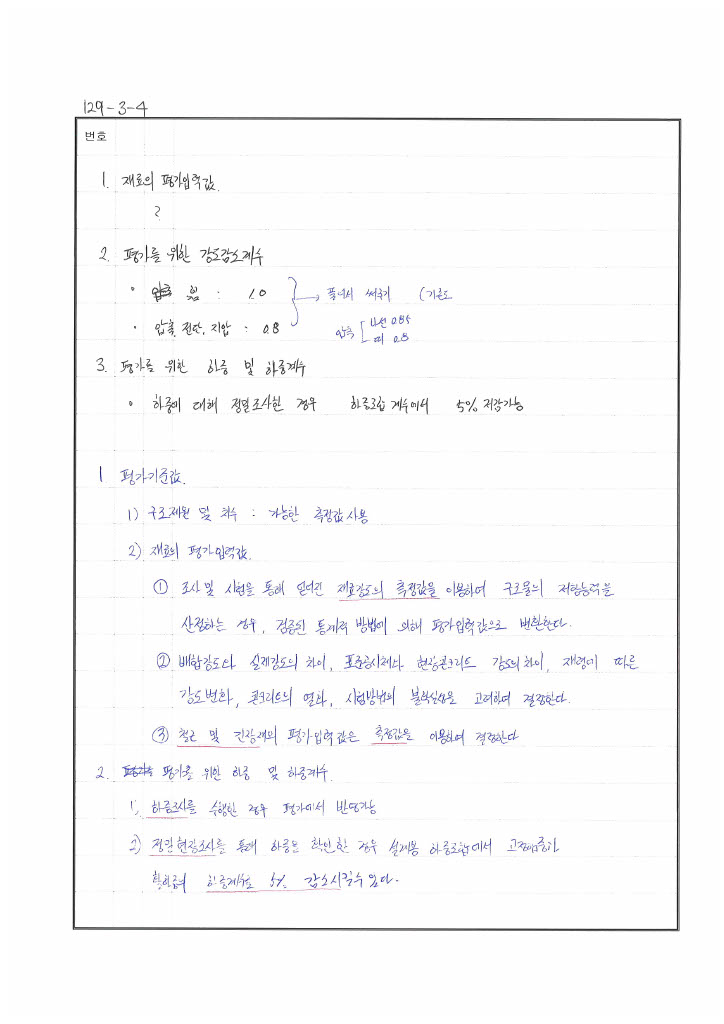 129-3-4
번호
1. 재료의 평가입력값.
?
2. 평가를 위한 강도감소계수
• 휨 : 1.0 풀어서 써주기 (기준도
• 압축, 전단, 지압 : 0.8 압축 [ 나선 0.85
띠 0.8
3. 평가를 위한 하중 및 하중계수
• 하중에 대해 정밀조사한 경우 하중조합 계수에서 5% 저감가능
1 평가기준값.
1) 구조제원 및 치수 : 가능한 측정값 사용
2) 재료의 평가입력값.
① 조사 및 시험을 통해 얻어진 재료강도의 측정값을 이용하여 구조물의 저항능력을
산정하는 경우, 검증된 통계적 방법에 의해 평가입력값으로 변환한다.
② 배합강도와 실제강도의 차이, 표준공시체와 현장콘크리트 강도의 차이, 재령에 따른
강도변화, 콘크리트의 열화, 시험방법의 불확실성을 고려하여 결정한다.
③ 철근 및 긴장재의 평가입력값은 측정값을 이용하여 결정한다
2. 평가를 위한 하중 및 하중계수
1) 하중조사를 수행한 경우 평가에서 반영가능
2) 정밀현장조사를 통해 하중을 확인한 경우 설계용 하중조합에서 고정하중과
활하중의 하중계수를 5% 감소시킬수 있다.